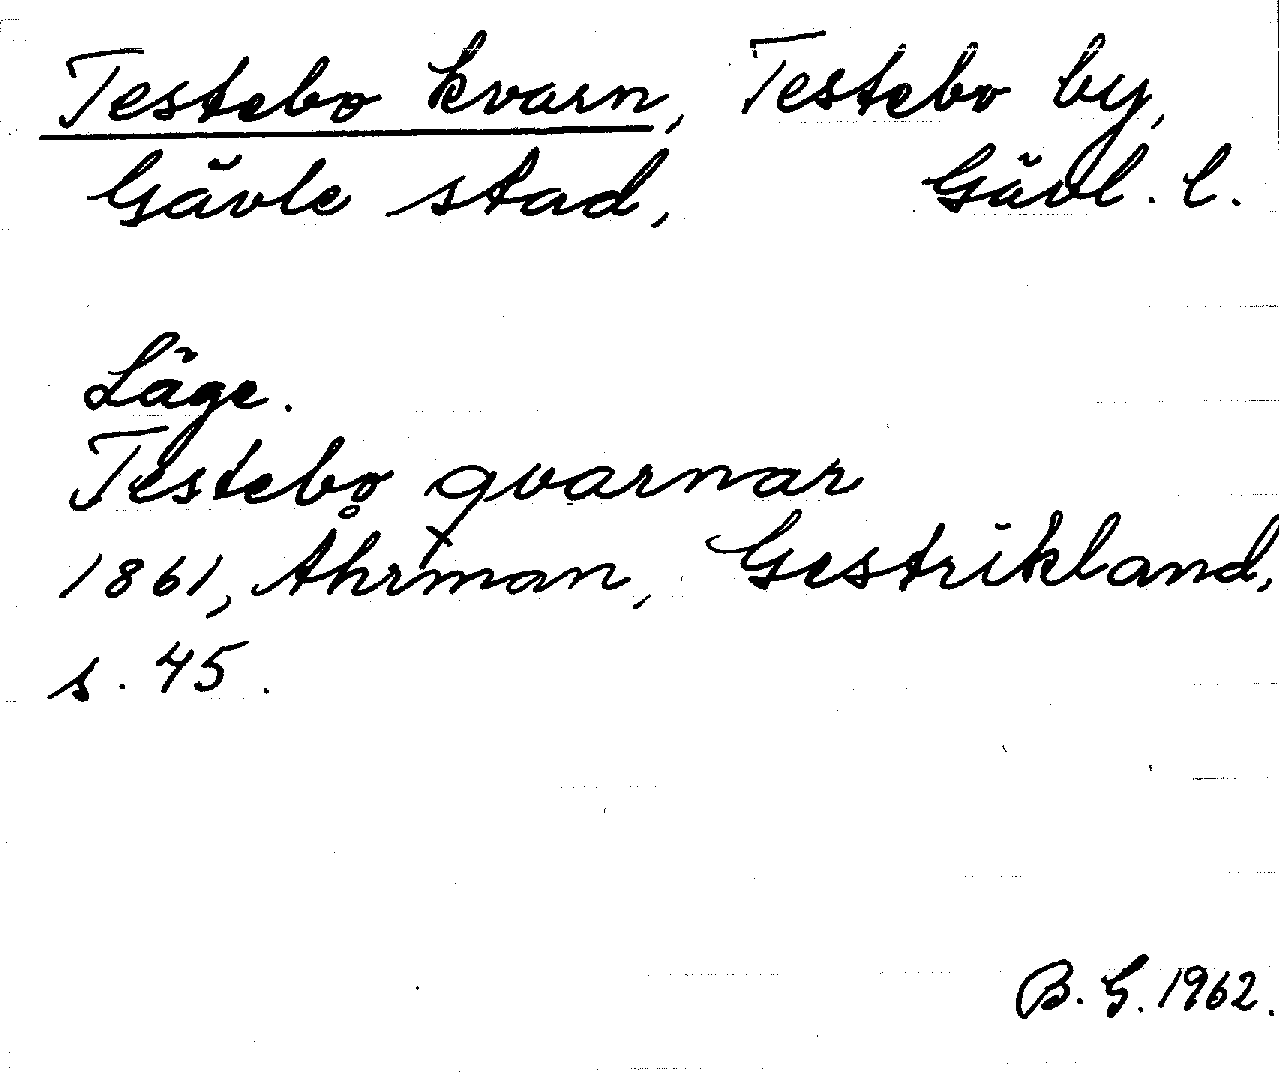 Testebo kvarn, Testebo by,
Gävle stad, Gävl. l.
Läge.
Testebo qvarnar
1861, Åhrman, Gestrikland,
s. 45.
B. G. 1962.